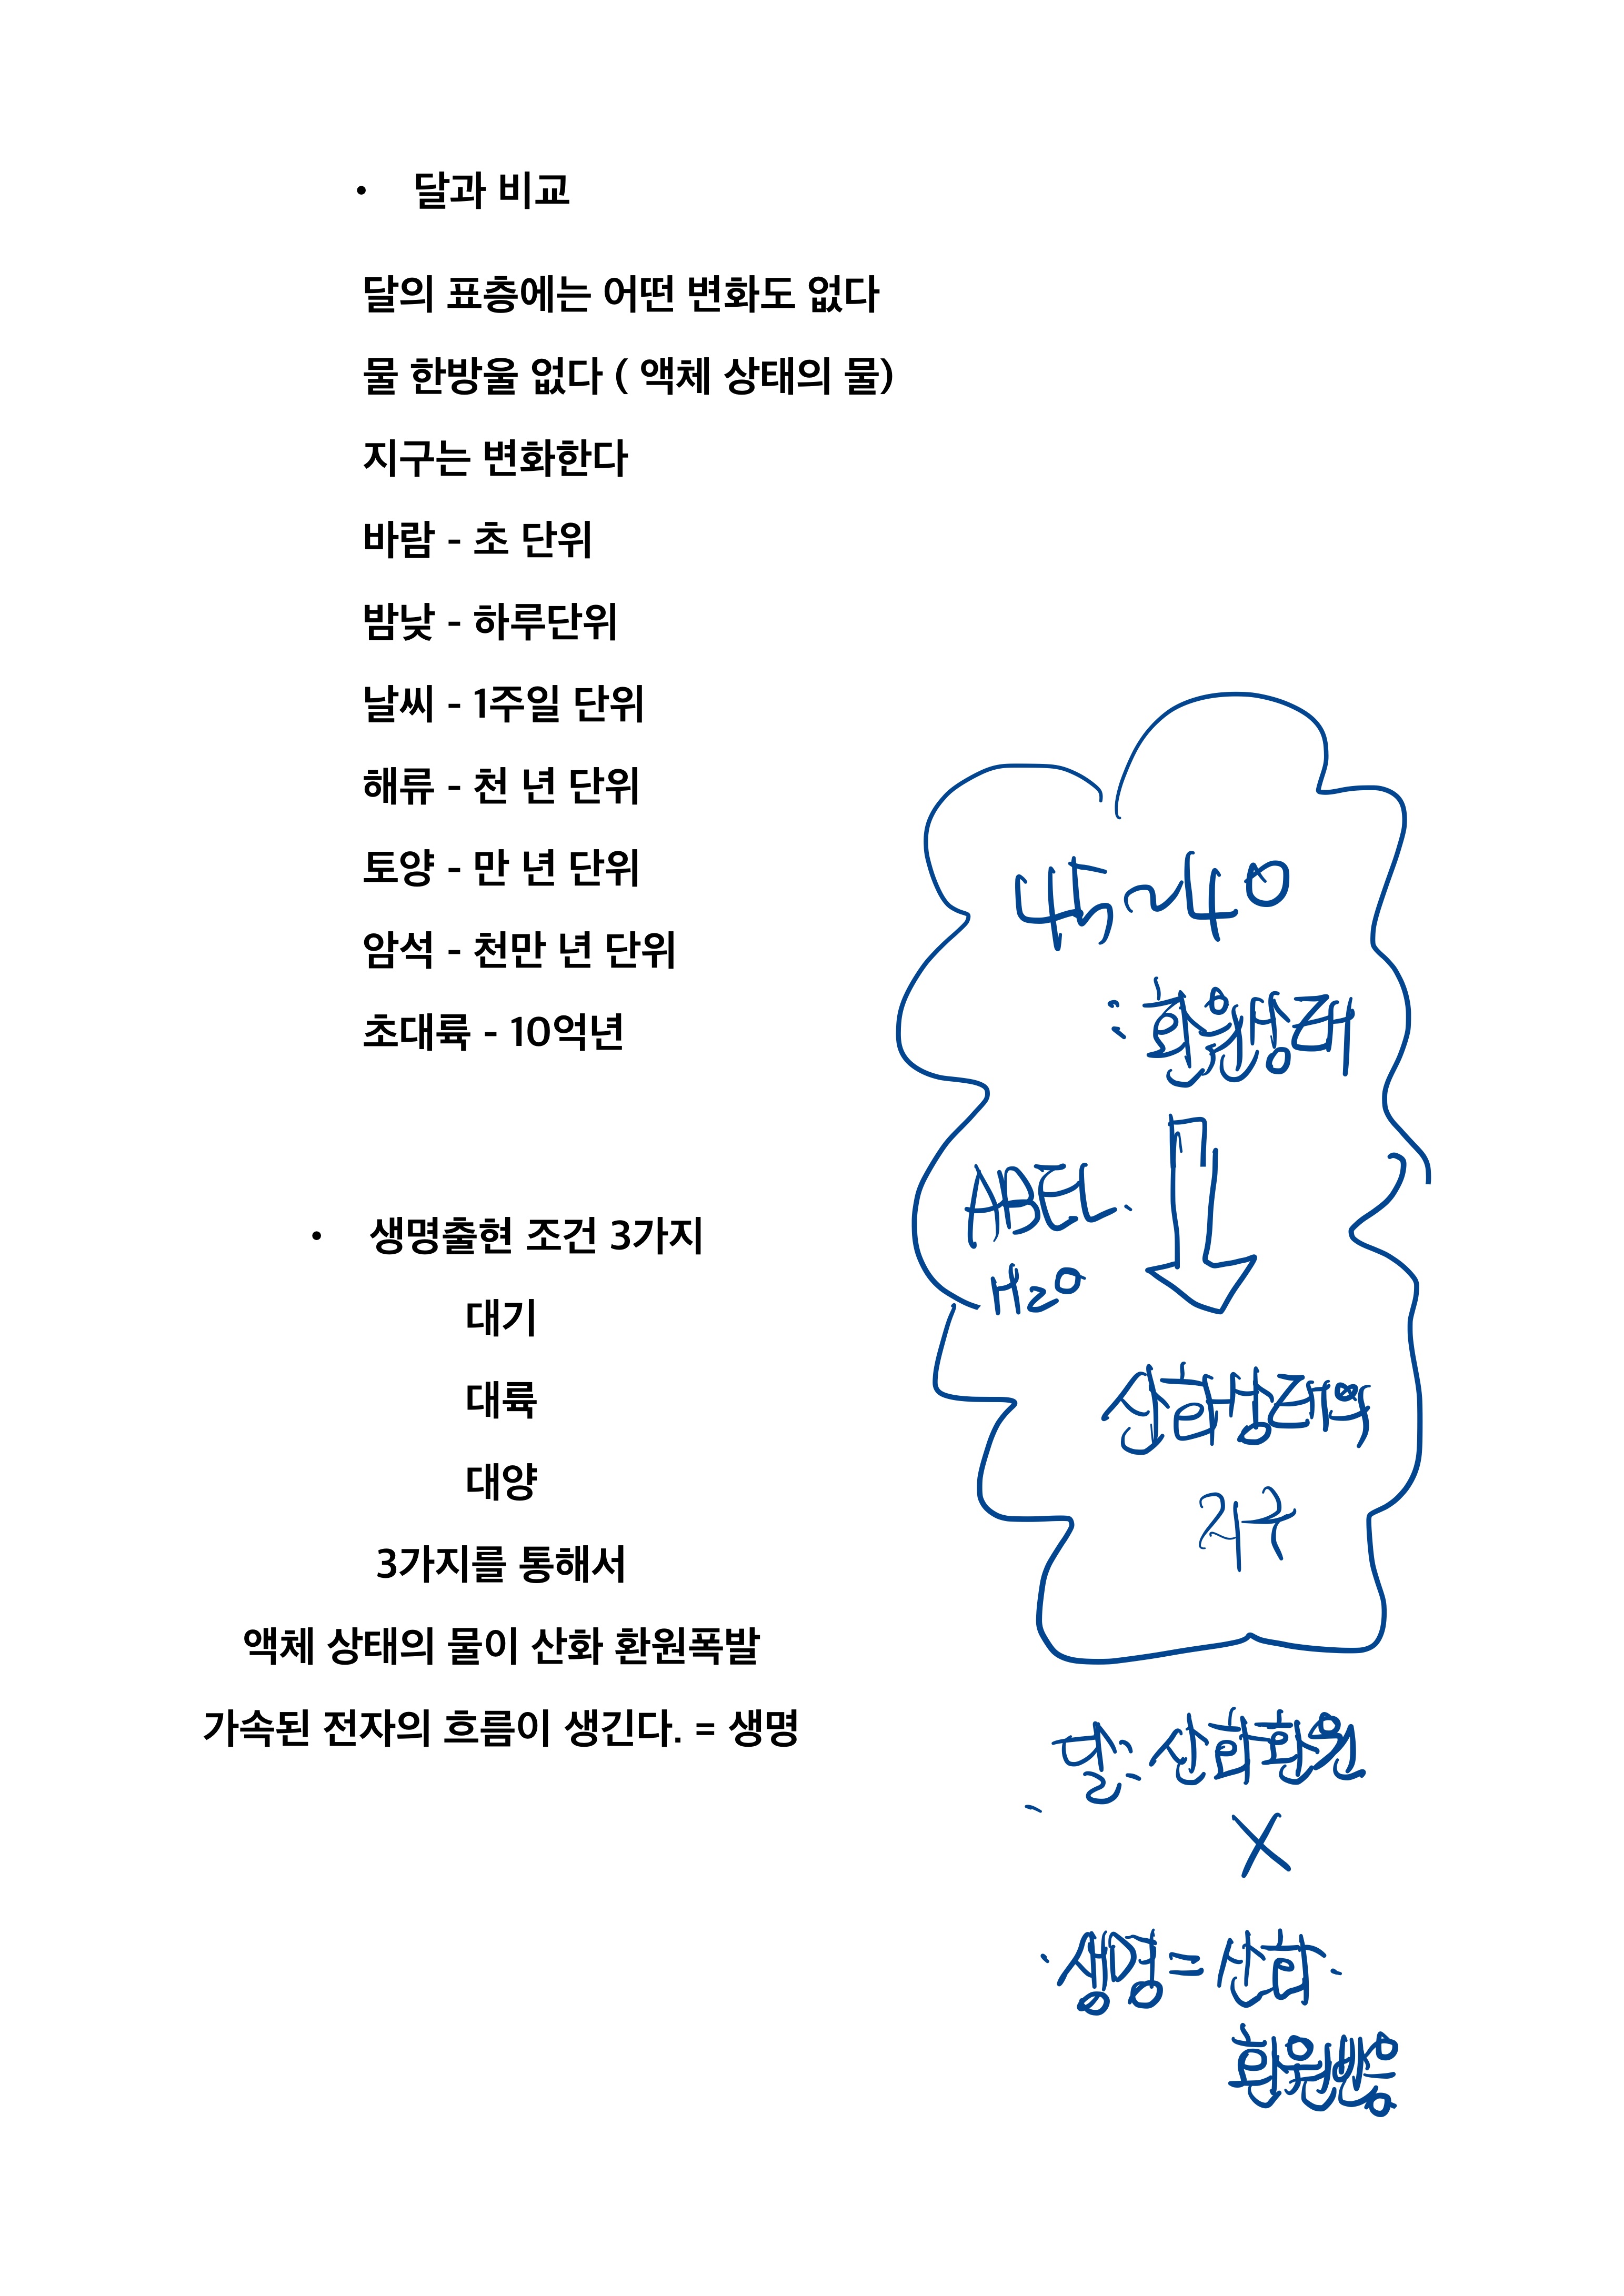 • 달과 비교
달의 표층에는 어떤 변화도 없다
물 한방울 없다 ( 액체 상태의 물)
지구는 변화한다
바람 - 초 단위
밤낮 - 하루단위
날씨 - 1주일 단위
해류 - 천 년 단위
토양 - 만 년 단위
암석 - 천만 년 단위
초대륙 - 10억년
• 생명출현 조건 3가지
대기
대륙
대양
3가지를 통해서
액체 상태의 물이 산화 환원폭발
가속된 전자의 흐름이 생긴다. = 생명
45~40
: 환원상태
ABEL
H2O
산화상태의
지구
달: 산화환원
X
·생명=산화·
환원반응